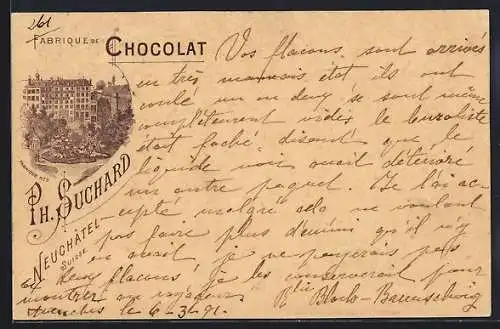 261
FABRIQUE DE CHOCOLAT
PH. SUCHARD
NEUCHÂTEL
SUISSE
Vos flacons sont arrivés
en très mauvais état ils ont
coulé un ou deux se sont même
complètement vidés le
était faché, disant que le
liquide noir avait détérioré
un autre paquet. Je l'ai ac-
cepté malgré cela ne voulant
pas faire plus d'ennui qu'il n'y
en avait je ne payerais pas
deux flacons je les conserverai pour
montrer au voyageur
le 6-3-91. Bloch-Braunschwig